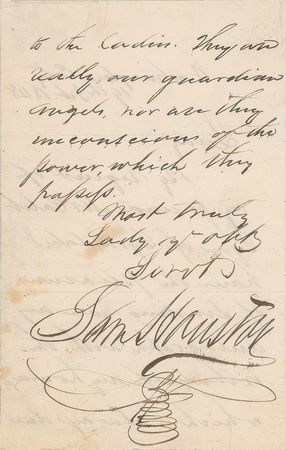 to the Ladies. They are
really our guardian
angels, nor are they
unconscious of the
power, which they
possess.
Most truly
Lady yr obt
Servt
Sam Houston